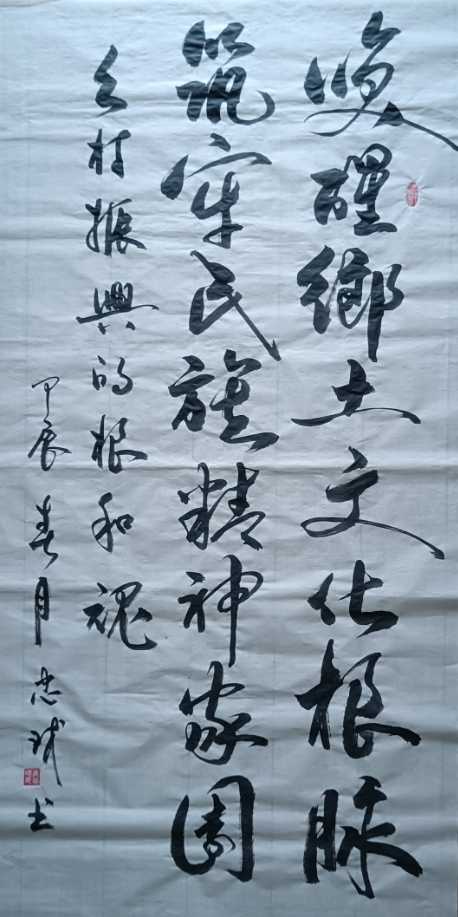 唤醒鄉土文化根脉
筑牢民族精神家園
乡村振興的根和魂
甲辰春月忠诚书